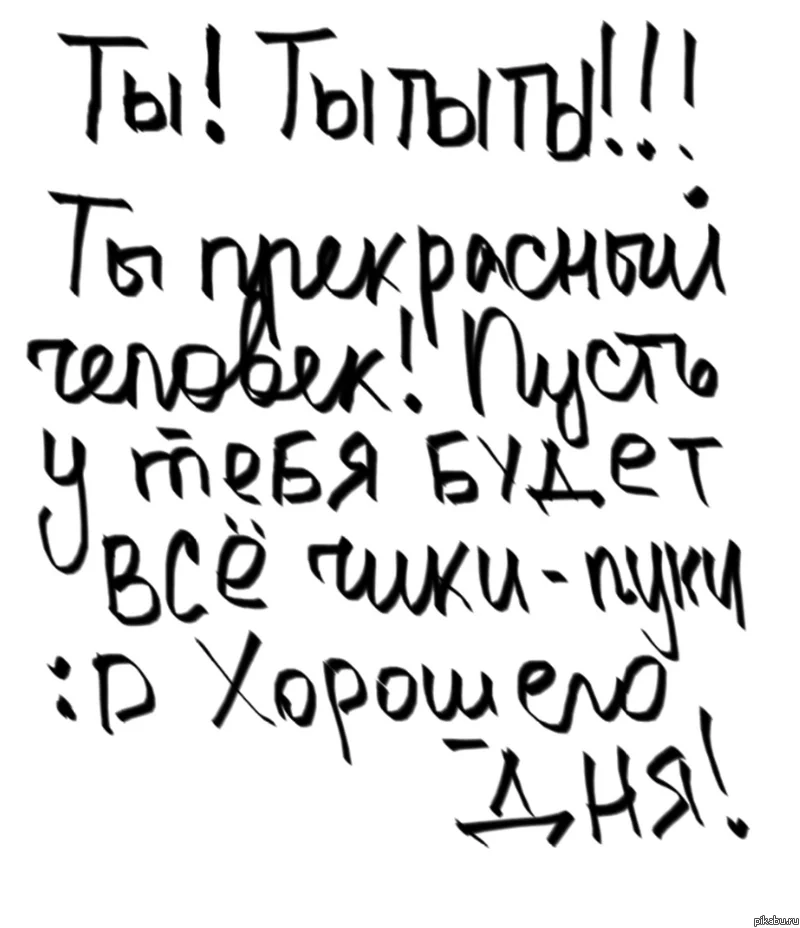 Ты! Тытыты!!!
Ты прекрасный
человек! Пусть
у тебя будет
всё чики-пуки
:D Хорошего
дня!
pikabu.ru